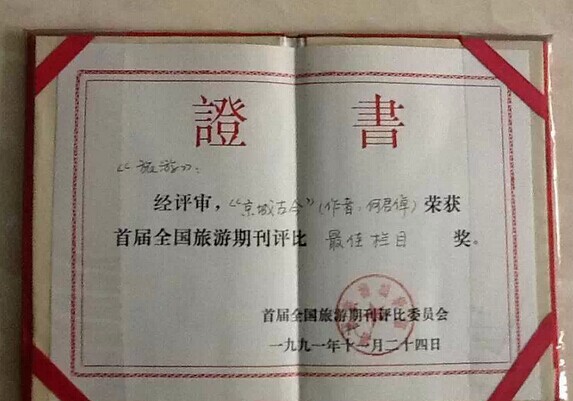 證書
《旅游》：
经评审，“京城古今”（作者：何君偉）荣获
首届全国旅游期刊评比 最佳栏目 奖。
首届全国旅游期刊评比委员会
一九九一年十一月二十四日